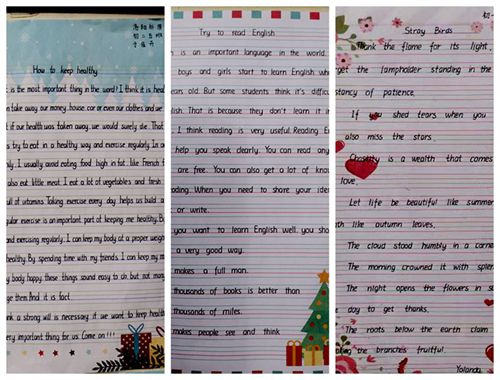 How to keep healthy
is the most important thing in the word? I think it is heal
take away our money, house, car or even our clothes and we
if our health was taken away, we would surely die. That
try to eat in a healthy way and exercise regularly. In o
I usually avoid eating food high in fat, like French f
also eat little meat. I eat a lot of vegetables and fresh
ull of vitamins. Taking exercise every day helps us build a
gular exercise is an important part of keeping me healthy. B
and exercising regularly, I can keep my body at a proper weigh
healthy. By spending time with my friends, I can keep my m
body happy. these things sound easy to do, but not many
ge them. find it is fact.
a strong will is necessary if we want to keep health
ery important thing for us. Come on!!!
Try to read English
is an important language in the world.
boys and girls start to learn English wh
ears old. But some students think it's difficu
lish. That is because they don't learn it in
I think reading is very useful. Reading E
help you speak clearly. You can read any
are free. You can also get a lot of know
ading. When you need to share your ide
or write.
you want to learn English well, you sho
a very good way.
makes a full man.
thousands of books is better than
thousands of miles.
makes people see and think
Stray Birds
Thank the flame for its light,
get the lampholder standing in the
stancy of patience.
If you shed tears when you
also miss the stars.
Chastity is a wealth that comes
love.
Let life be beautiful like summer
th like autumn leaves.
The cloud stood humbly in a corne
The morning crowned it with splen
The night opens the flowers in s
day to get thanks.
The roots below the earth claim
ing the branches fruitful.
Yolanda